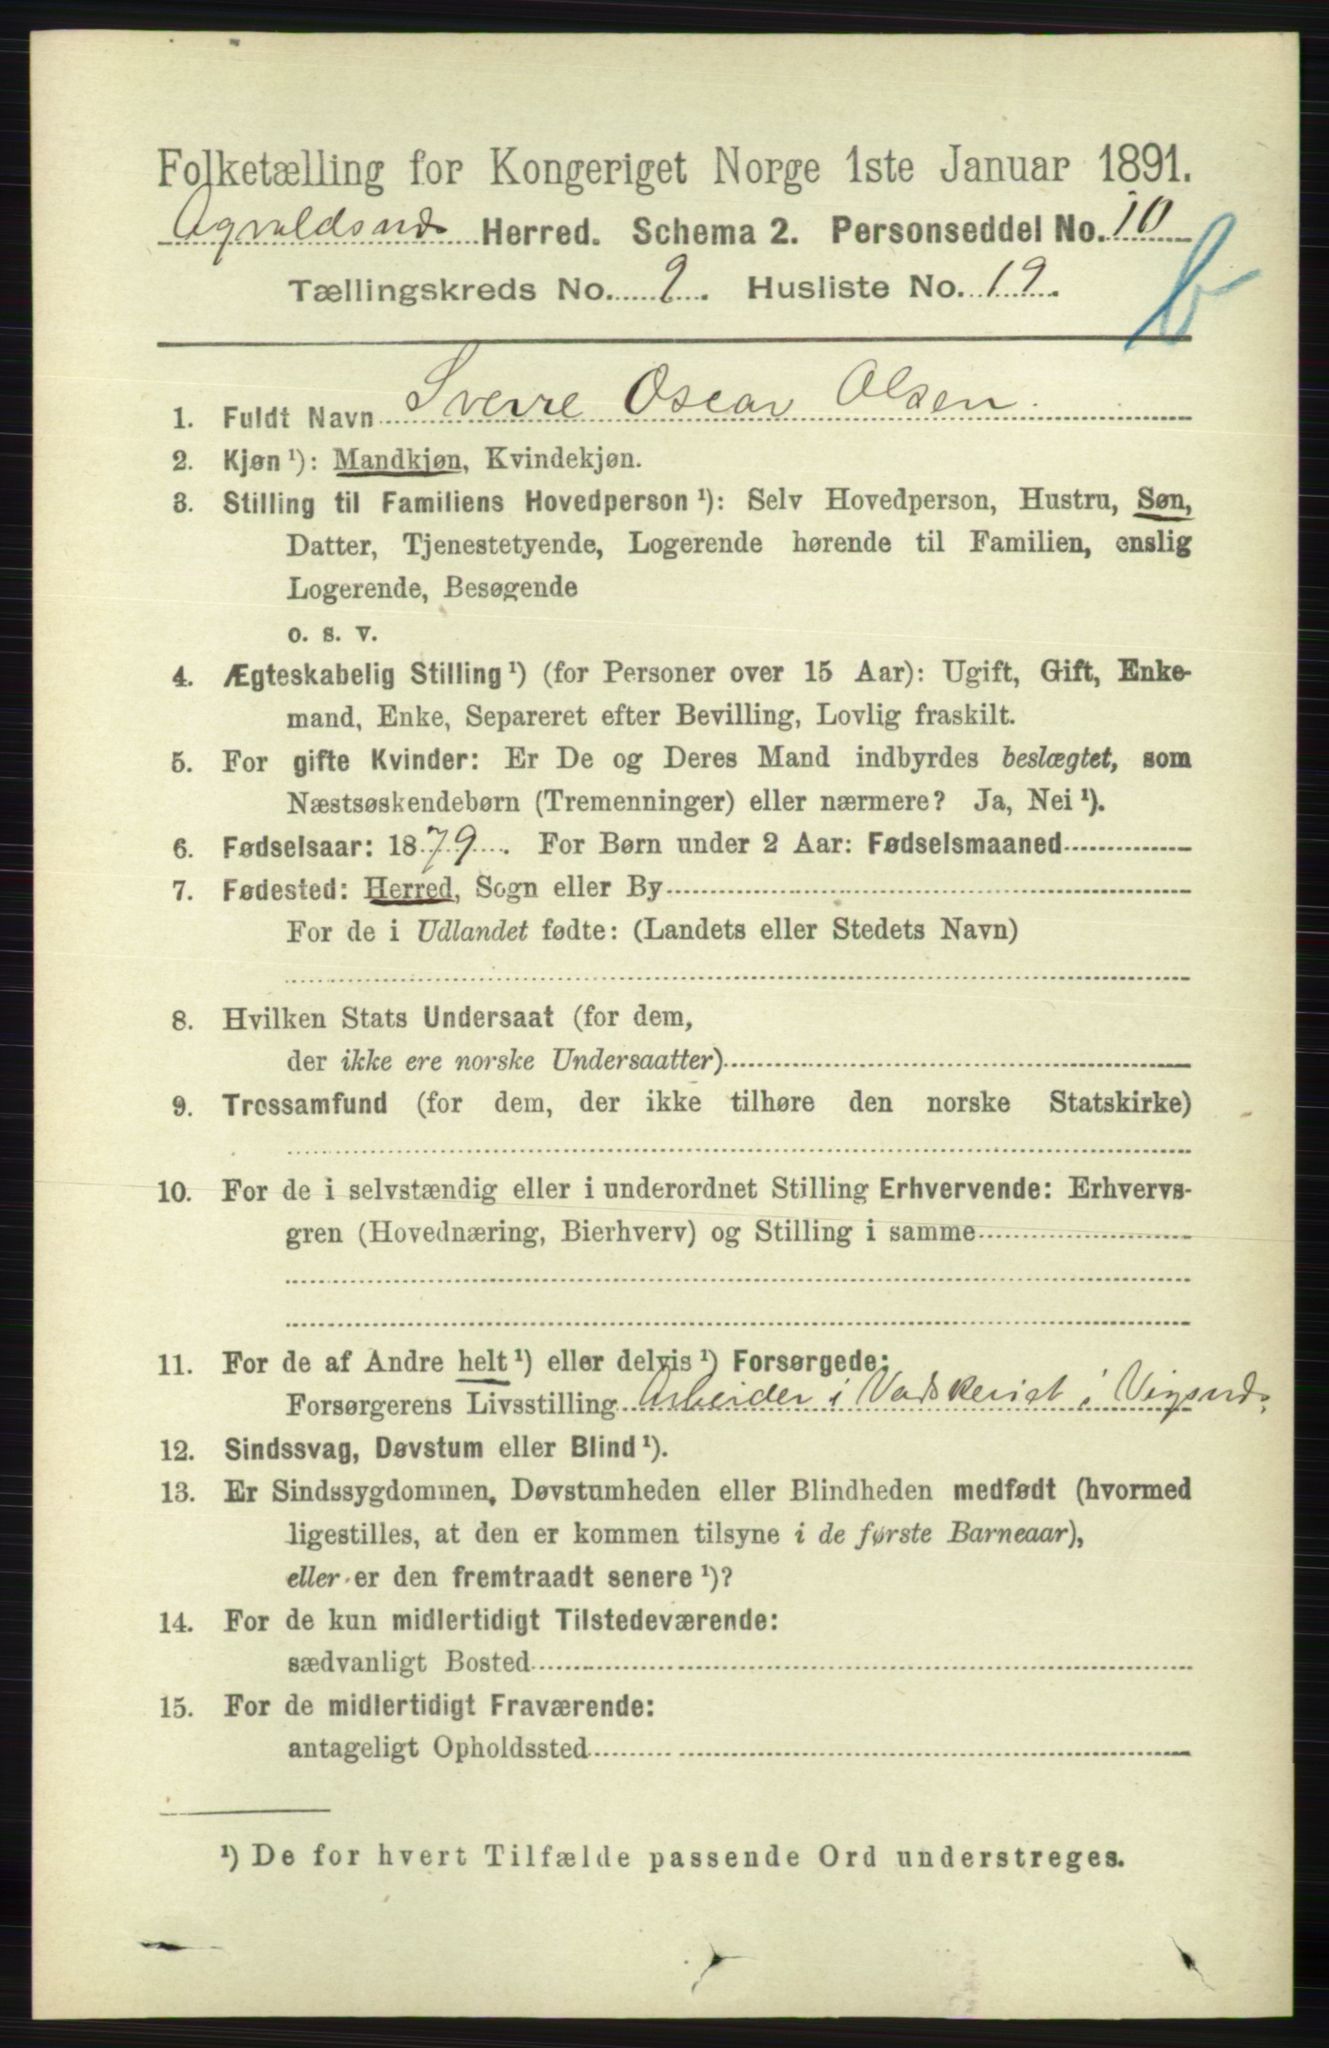 Folketælling for Kongeriget Norge 1ste Januar 1891.
Agvaldsnds Herred. Schema 2. Personseddel No. 10
Tællingskreds No. 9. Husliste No. 19.
b
1. Fuldt Navn Sverre Oscar Olsen.
2. Kjøn ¹): Mandkjøn, Kvindekjøn.
3. Stilling til Familiens Hovedperson ¹): Selv Hovedperson, Hustru, Søn,
Datter, Tjenestetyende, Logerende hørende til Familien, enslig
Logerende, Besøgende
o. s. v.
4. Ægteskabelig Stilling ¹) (for Personer over 15 Aar): Ugift, Gift, Enke-
mand, Enke, Separeret efter Bevilling, Lovlig fraskilt.
5. For gifte Kvinder: Er De og Deres Mand indbyrdes beslægtet, som
Næstsøskendebørn (Tremenninger) eller nærmere? Ja, Nei ¹).
6. Fødselsaar: 1879. For Børn under 2 Aar: Fødselsmaaned
7. Fødested: Herred, Sogn eller By
For de i Udlandet fødte: (Landets eller Stedets Navn)
8. Hvilken Stats Undersaat (for dem,
der ikke ere norske Undersaatter)
9. Trossamfund (for dem, der ikke tilhøre den norske Statskirke)
10. For de i selvstændig eller i underordnet Stilling Erhvervende: Erhvervs-
gren (Hovednæring, Bierhverv) og Stilling i samme
11. For de af Andre helt ¹) eller delvis ¹) Forsørgede:
Forsørgerens Livsstilling Arbeider i Vadskeriet i Vigsnds.
12. Sindssvag, Døvstum eller Blind ¹).
13. Er Sindssygdommen, Døvstumheden eller Blindheden medfødt (hvormed
ligestilles, at den er kommen tilsyne i de første Barneaar),
eller er den fremtraadt senere ¹)?
14. For de kun midlertidigt Tilstedeværende:
sædvanligt Bosted
15. For de midlertidigt Fraværende:
antageligt Opholdssted
¹) De for hvert Tilfælde passende Ord understreges.